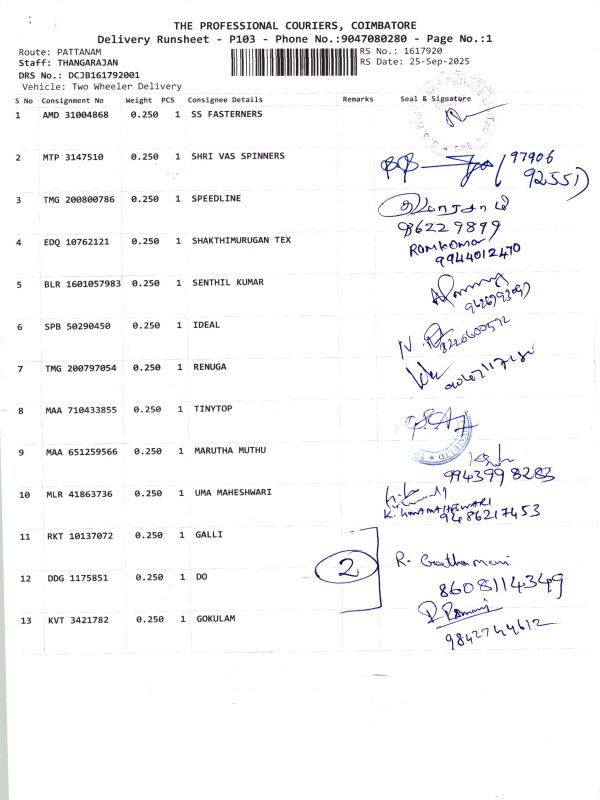 THE PROFESSIONAL COURIERS, COIMBATORE
Delivery Runsheet - P103 - Phone No.:9047080280 - Page No.:1
Route: PATTANAM
RS No.: 1617920
Staff: THANGARAJAN
RS Date: 25-Sep-2025
DRS No.: DCJB161792001
Vehicle: Two Wheeler Delivery
S No Consignment No Weight PCS Consignee Details Remarks Seal & Signature
1 AMD 31004868 0.250 1 SS FASTERNERS
2 MTP 3147510 0.250 1 SHRI VAS SPINNERS
97906
92551)
3 TMG 200800786 0.250 1 SPEEDLINE
86229899
4 EDQ 10762121 0.250 1 SHAKTHIMURUGAN TEX
Ramkumar
9944012470
5 BLR 1601057983 0.250 1 SENTHIL KUMAR
6 SPB 50290450 0.250 1 IDEAL
8220600572
7 TMG 200797054 0.250 1 RENUGA
8 MAA 710433855 0.250 1 TINYTOP
9 MAA 651259566 0.250 1 MARUTHA MUTHU
9943998283
10 MLR 41863736 0.250 1 UMA MAHESHWARI
K. UMAMAHESWARI
9486217453
11 RKT 10137072 0.250 1 GALLI
2
R. Gowthamani
12 DDG 1175851 0.250 1 DO
8608114349
13 KVT 3421782 0.250 1 GOKULAM
9842744612